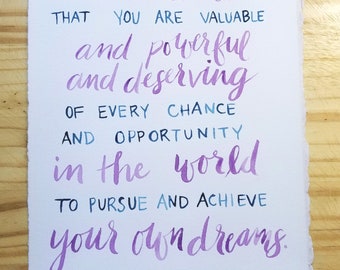 THAT YOU ARE VALUABLE
and powerful
and deserving
OF EVERY CHANCE
AND OPPORTUNITY
in the world
TO PURSUE AND ACHIEVE
your own dreams.